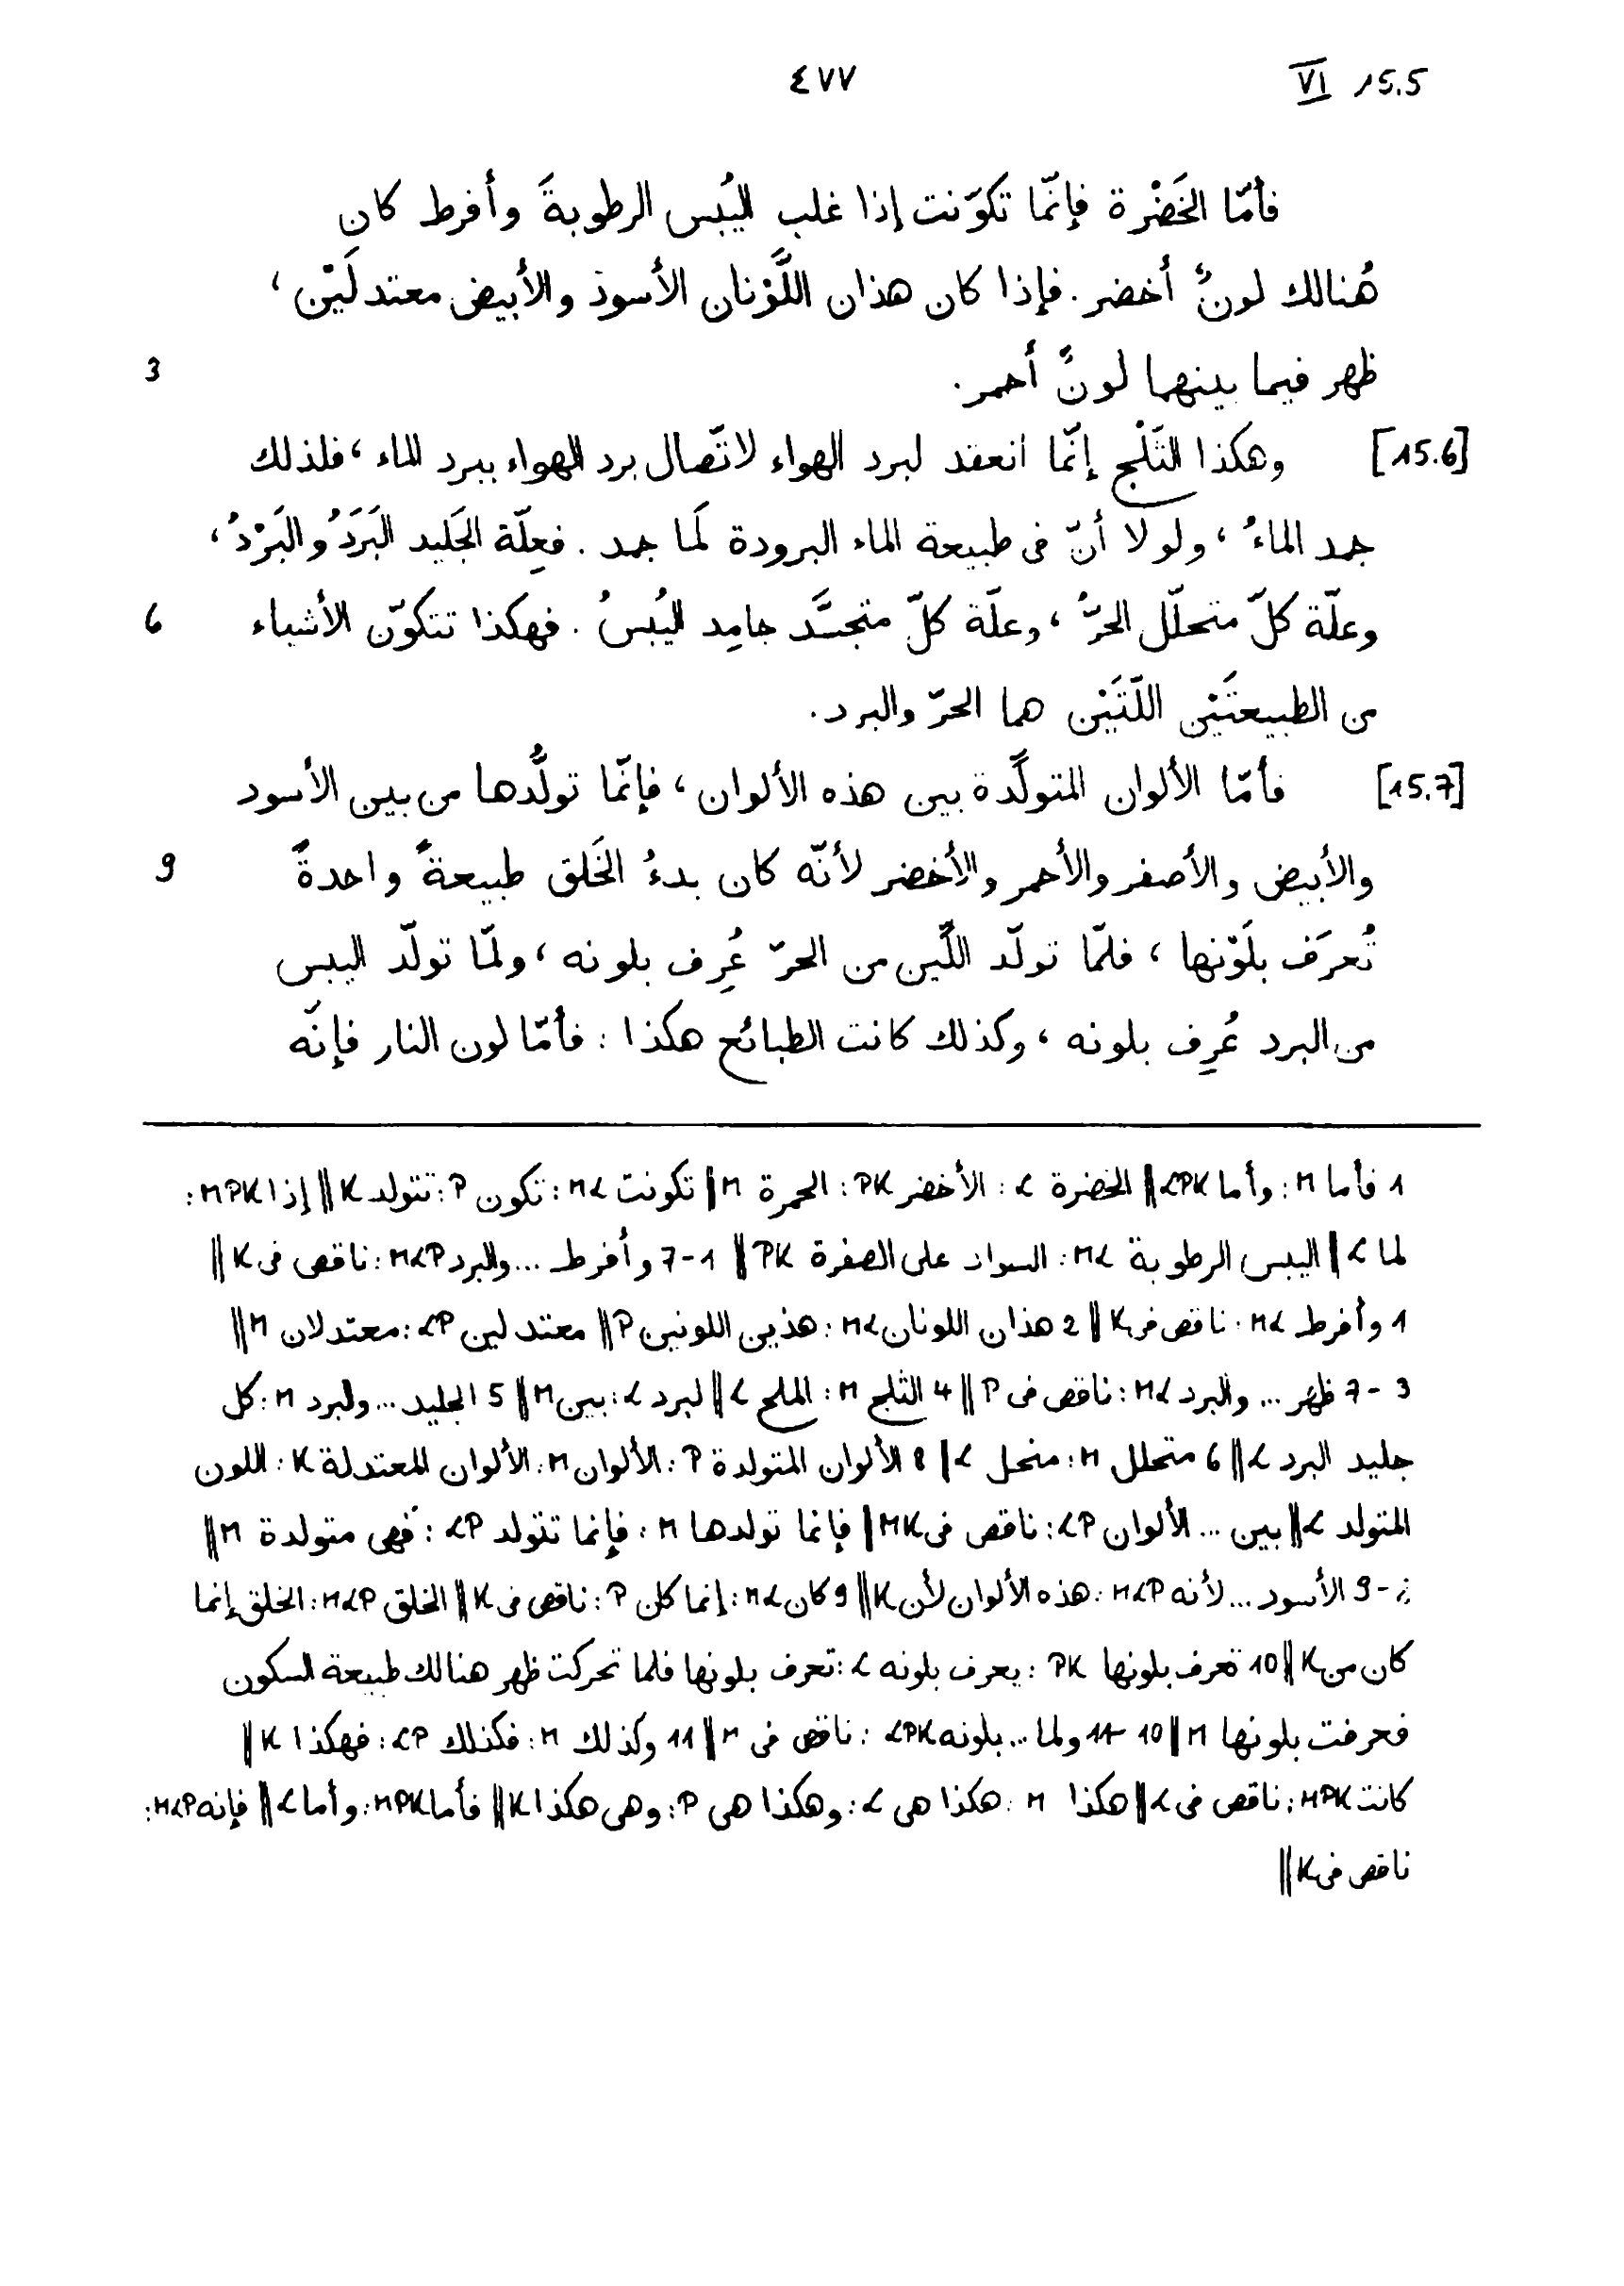 ٤٧٧ VI 15.5
فأمّا الخَضْرة فإنّما تكوّنت إذا غلب اليُبس الرطوبةَ وأفرط كان
هُنالك لونٌ أخضر. فإذا كان هذان اللَّوْنان الأسود والأبيض معتدلَيْن،
ظهر فيما بينهما لونٌ أحمر. 3
[15.6] وهكذا الثَلْج إنّما انعقد لبرد الهواء لاتّصال برد الهواء ببرد الماء، فلذلك
جمد الماءُ، ولولا أنّ فى طبيعة الماء البرودة لَما جمد. فعِلّة الجَليد البَرَدُ والبَرْدُ،
وعلّة كلّ متحلّل الحرُّ، وعلّة كلّ متجسَّد جامِد اليُبسُ. فهكذا تتكوّن الأشياء 6
من الطبيعتَيْن اللّتَيْن هما الحرّ والبرد.
[15.7] فأمّا الألوان المتولِّدة بين هذه الألوان، فإنّما تولُّدها من بين الأسود
والأبيض والأصفر والأحمر والأخضر لأنّه كان بدءُ الخَلق طبيعةً واحدةً 9
تُعرَف بلَوْنها، فلمّا تولّد اللّين من الحرّ عُرِف بلونه، ولمّا تولّد اليبس
من البرد عُرِف بلونه، وكذلك كانت الطبائع هكذا: فأمّا لون النار فإنّه
1 فأما M: وأما LPK || الخضرة L: الأخضر PK: الحمرة M || تكونت ML: تكون P: تتولد K || إذا MPK:
لما L || اليبس الرطوبة ML: السواد على الصفرة PK || 1-7 وأفرط ... والبرد MLP: ناقص فى K ||
1 وأفرط ML: ناقص فى K || 2 هذان اللونان ML: هذين اللونين P || معتدلين LP: معتدلان M ||
3-7 ظهر ... والبرد ML: ناقص فى P || 4 الثلج M: الملح L || لبرد L: بين M || 5 الجليد ... والبرد M: كل
جليد البرد L || 6 متحلل M: منحل L || 8 الألوان المتولدة P: الألوان M: الألوان المعتدلة K: اللون
المتولد L || بين ... الألوان LP: ناقص فى MK || فإنما تولدها M: فإنما تتولد LP: فهى متولدة M ||
-9 الأسود ... لأنه MLP: هذه الألوان لأن K || 9 كان ML: إنما كان P: ناقص فى K || الخلق MLP: الخلق إنما
كان من K || 10 تعرف بلونها PK: يعرف بلونه L: تعرف بلونها فلما تحركت ظهر هنالك طبيعة السكون
فعرفت بلونها M || 10-11 ولما ... بلونه LPK: ناقص فى M || 11 وكذلك M: فكذلك LP: فهكذا K ||
كانت MPK: ناقص فى L || هكذا M: هكذا هى L: وهكذا هى P: وهى هكذا K || فأما MPK: وأما L || فإنه MLP:
ناقص فى K ||